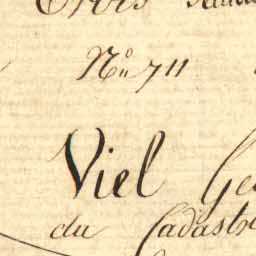 Trois
No. 711
Viel Ge
du Cadastre